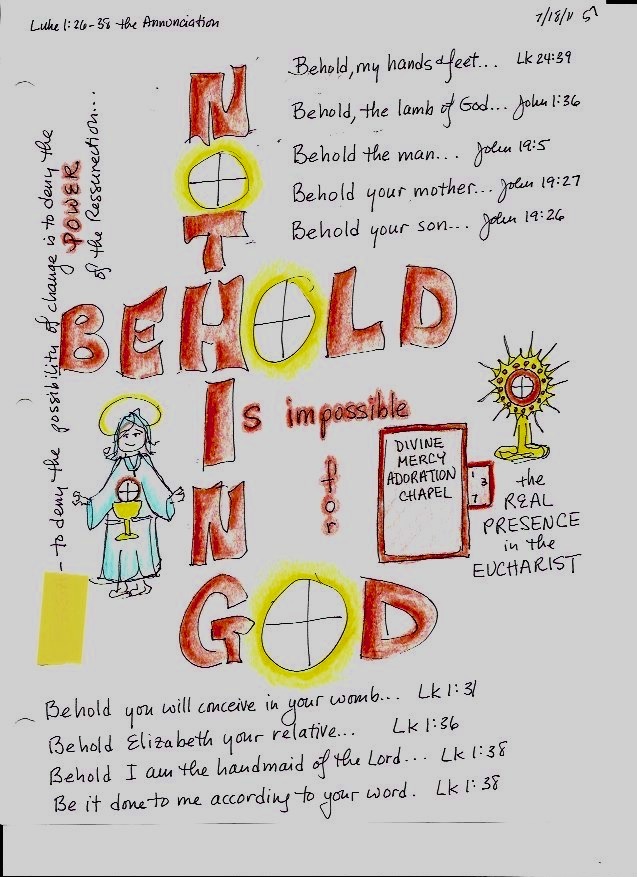 Luke 1:26-38 the Annunciation
7/18/11 57
Behold, my hands & feet... Lk 24:39
Behold, the lamb of God... John 1:36
Behold the man... John 19:5
Behold your mother... John 19:27
Behold your son... John 19:26
- to deny the possibility of change is to deny the
POWER
of the Ressurection...
NOTHING
BEHOLD
Is impossible
for
GOD
DIVINE
MERCY
ADORATION
CHAPEL
the
REAL
PRESENCE
in the
EUCHARIST
Behold you will conceive in your womb... Lk 1:31
Behold Elizabeth your relative... Lk 1:36
Behold I am the handmaid of the Lord... Lk 1:38
Be it done to me according to your word. Lk 1:38